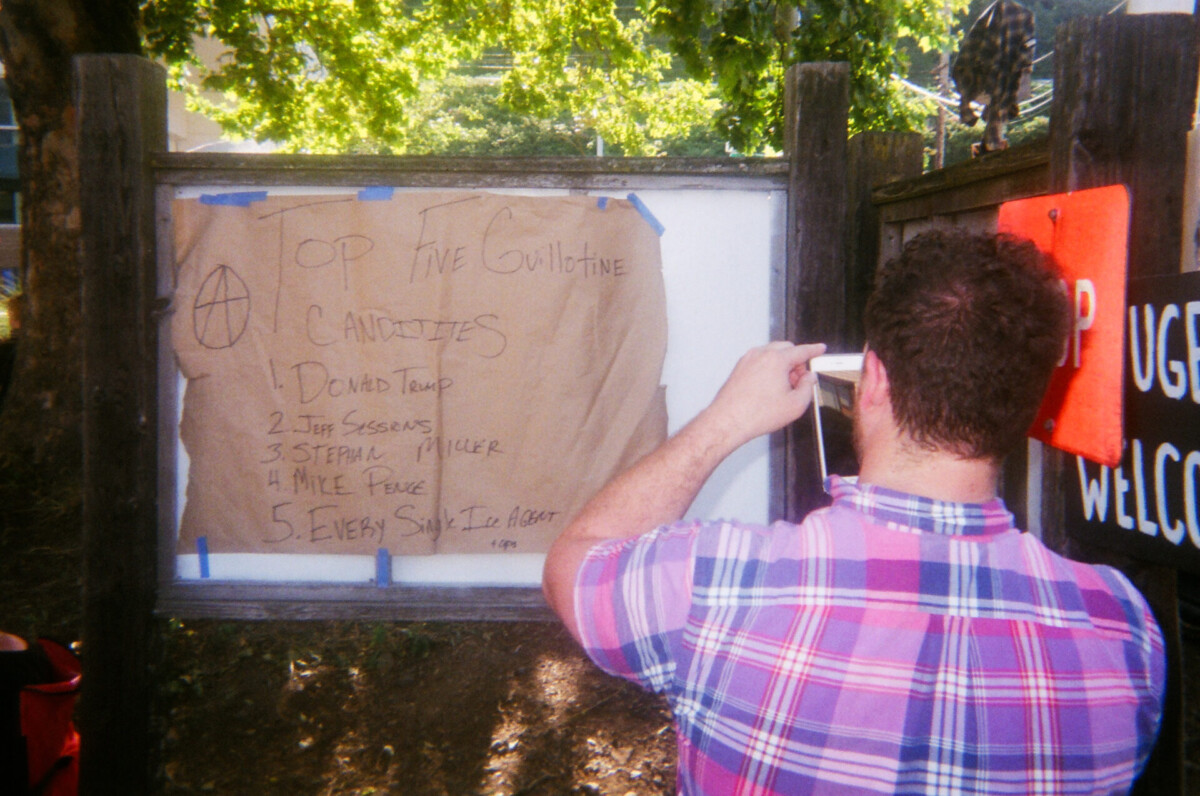 Top Five Guillotine
Candidites
1. Donald Trump
2. Jeff Sessions
3. Stephan Miller
4. Mike Pence
5. Every Single Ice Agent
+ cops
OP
UGE
WELCO